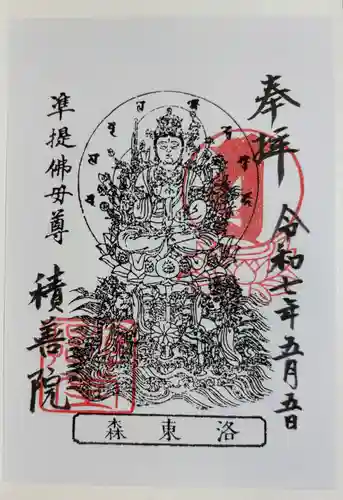 奉拝
令和七年五月五日
準提佛母尊
積善院
洛東森